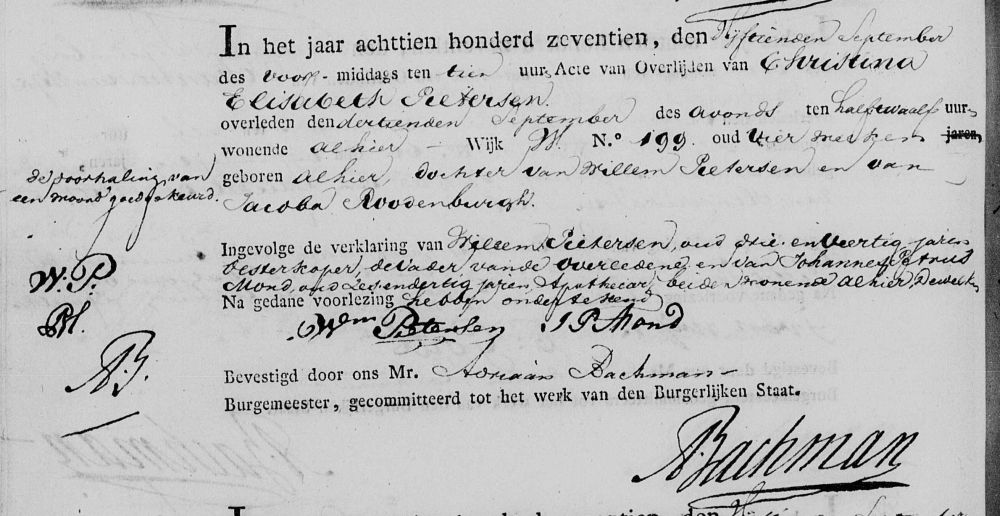 In het jaar achttien honderd zeventien, den Vijftienden September
des voor- middags ten tien uur, Acte van Overlijden van Christina
Elisabeth Pietersen.
overleden den dertienden September des avonds ten half twaalf uur,
wonende alhier – Wijk W. N.º 199. oud vier weeken jaren,
geboren alhier, dochter van Willem Pietersen en van
Jacoba Roodenburgh.
de doorhaling van
een woord goedgekeurd.
W.P.
PM.
AB.
Ingevolge de verklaring van Willem Pietersen, oud drie en veertig jaren
Oesterkoper, de Vader van de overledene, en van Johannes Petrus
Mond, oud zes en dertig jaren, Apothecar, beide wonende alhier, Dewelke
Na gedane voorlezing hebben ondertekend
Wm Pietersen J P Mond
Bevestigd door ons Mr. Adriaan Bachman –
Burgemeester, gecommitteerd tot het werk van den Burgerlijken Staat.
ABachman
In